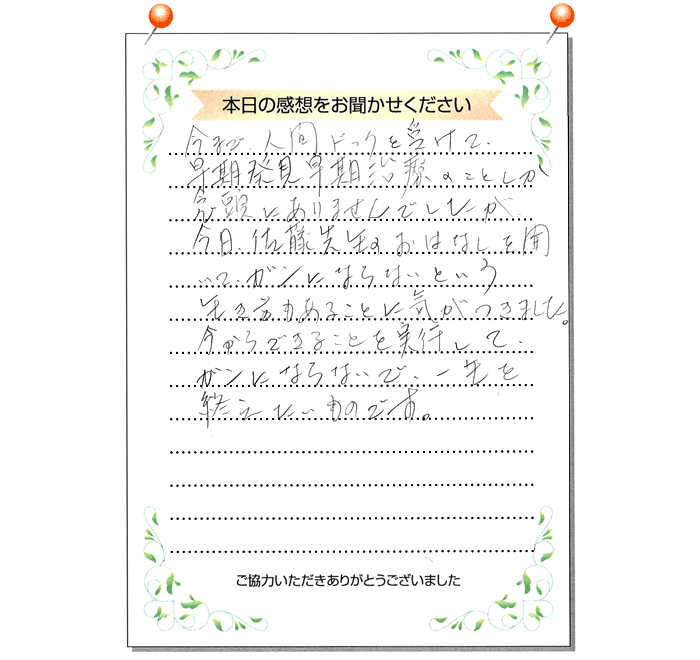 本日の感想をお聞かせください
今まで、人間ドックを受けて、
早期発見早期治療のことしか
念頭にありませんでしたが
今日、佐藤先生のおはなしを聞
いて、ガンにならないという
生き方もあることに気がつきました。
今からできることを実行して、
ガンにならないで、一生を
終えたいものです。
ご協力いただきありがとうございました